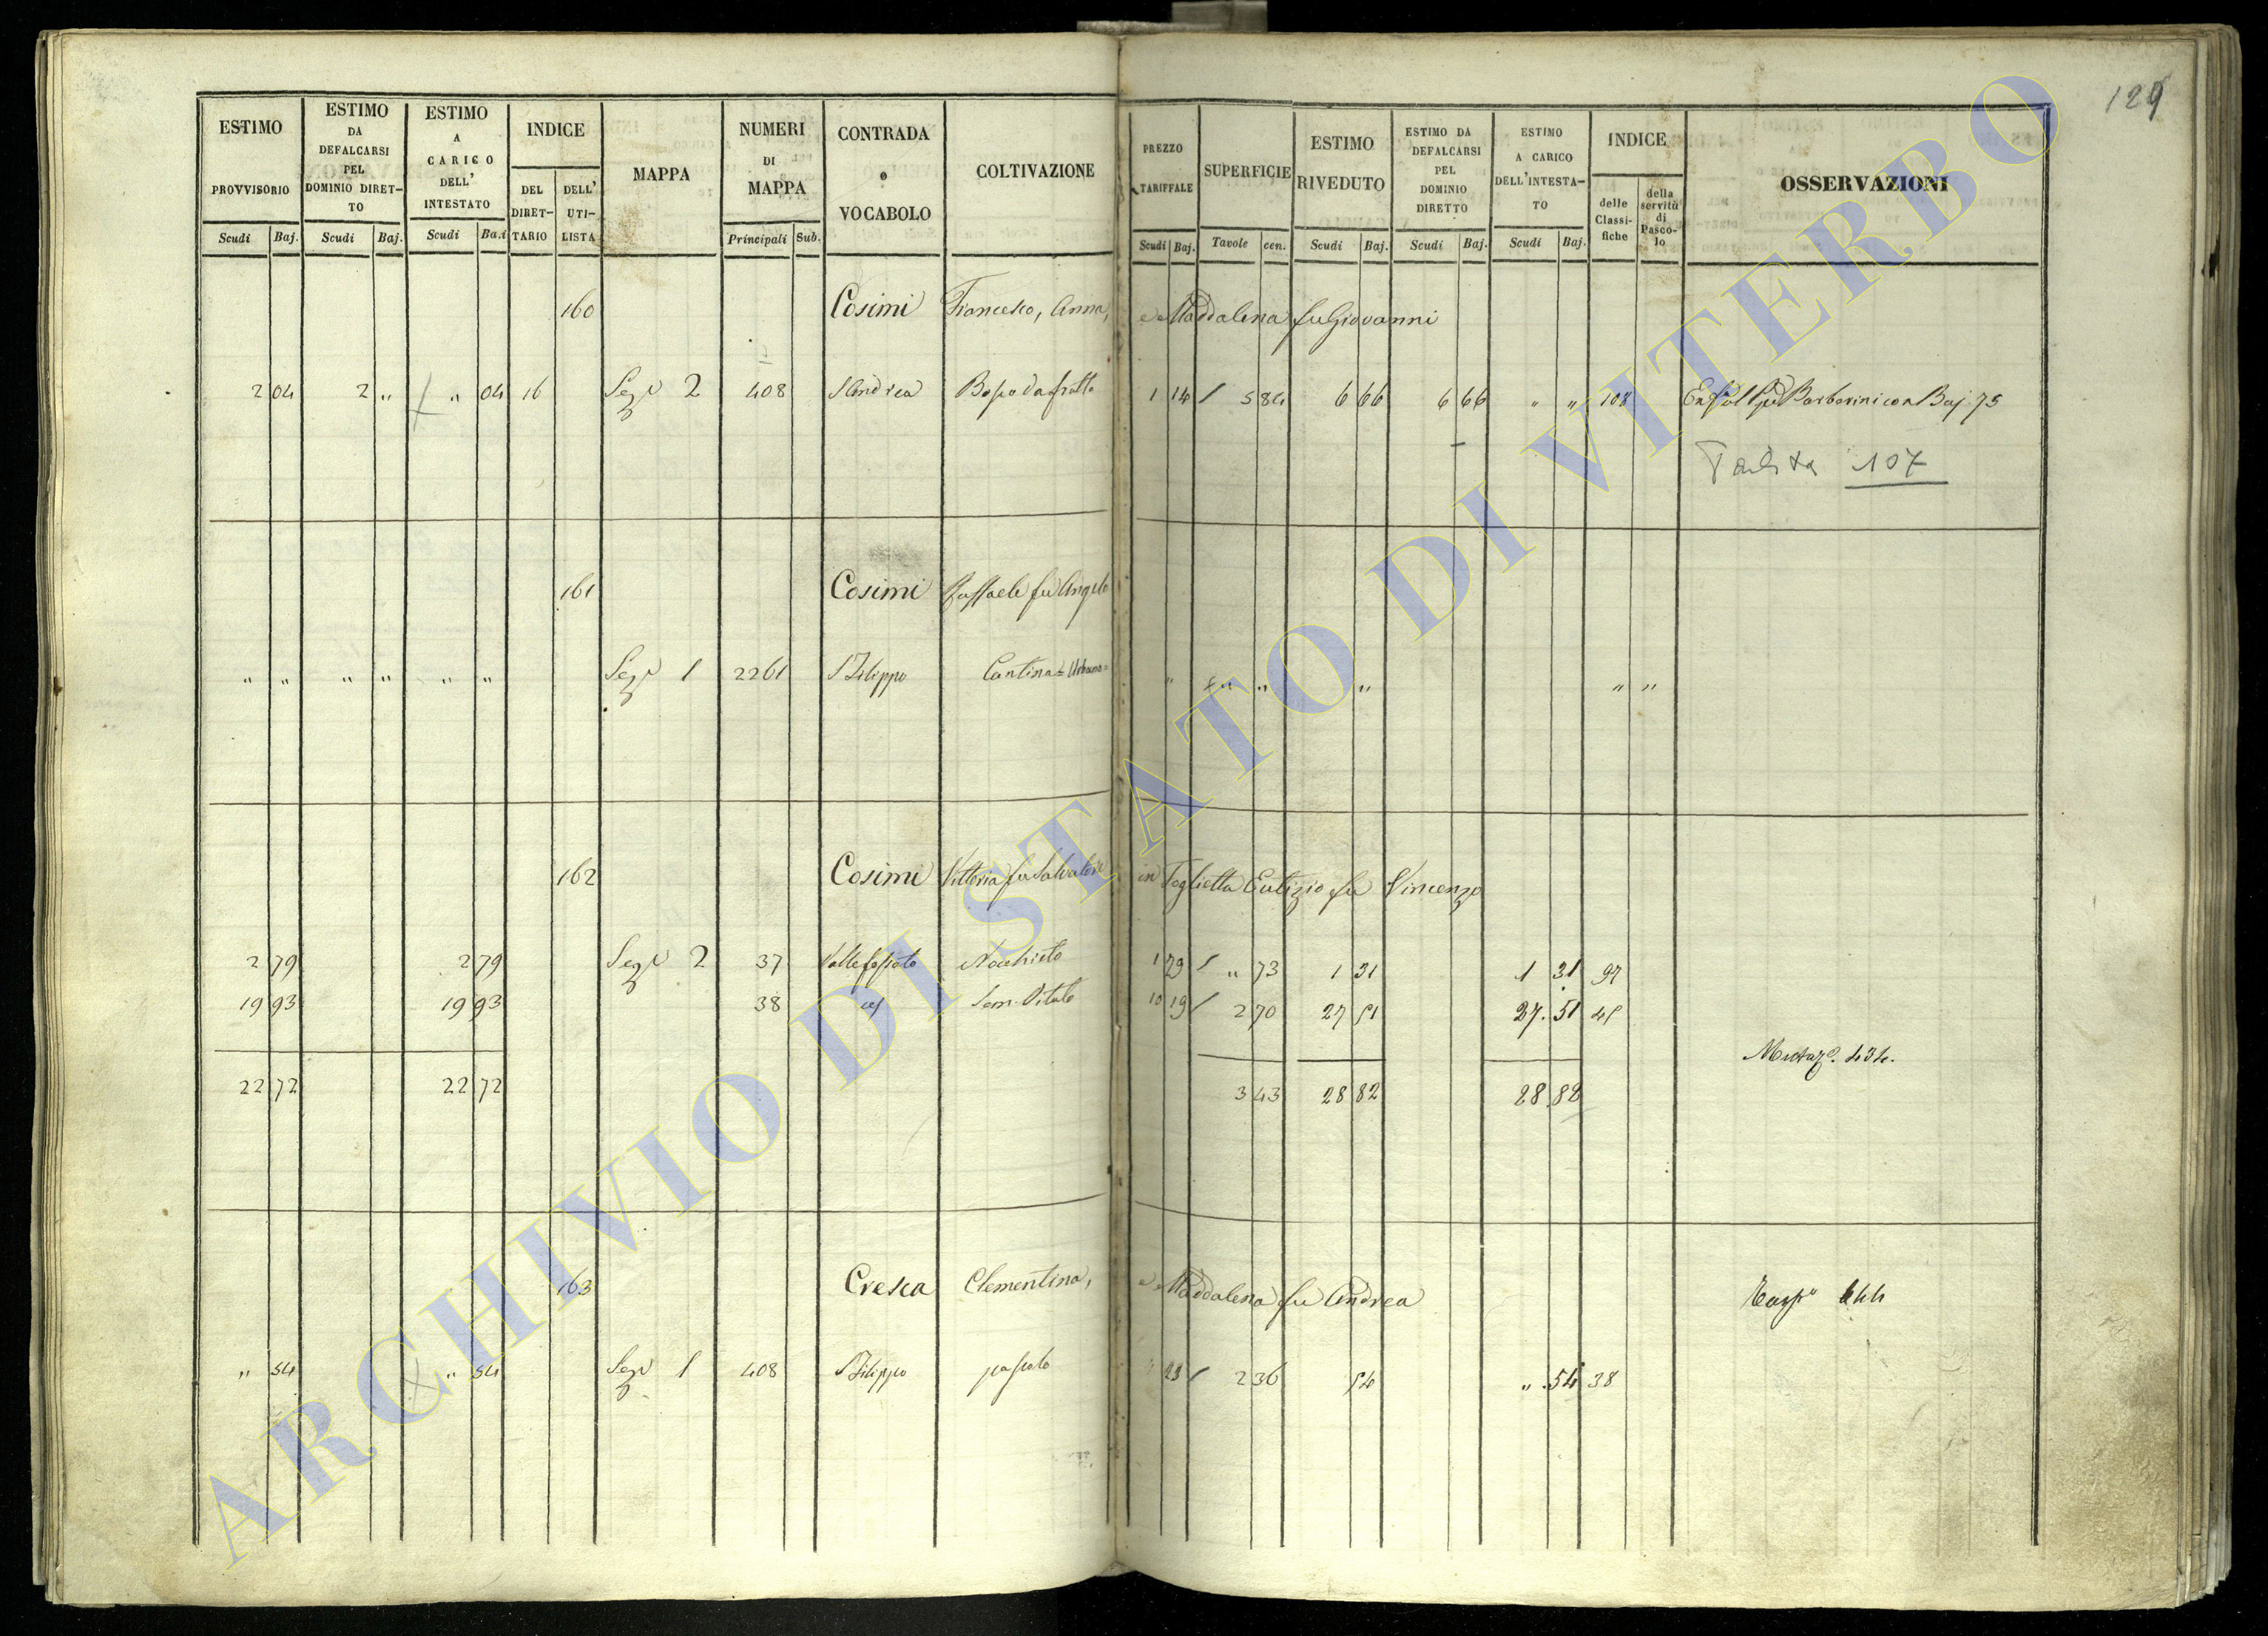 129
ESTIMO PROVVISORIO | ESTIMO DA DEFALCARSI PEL DOMINIO DIRETTO | ESTIMO A CARICO DELL' INTESTATO | INDICE | MAPPA | NUMERI DI MAPPA | CONTRADA o VOCABOLO | COLTIVAZIONE | PREZZO TARIFFALE | SUPERFICIE | ESTIMO RIVEDUTO | ESTIMO DA DEFALCARSI PEL DOMINIO DIRETTO | ESTIMO A CARICO DELL'INTESTATO | INDICE | OSSERVAZIONI
Scudi | Baj. | Scudi | Baj. | Scudi | Baj. | DEL DIRETTARIO | DELL' UTILISTA | Principali | Sub. | Scudi | Baj. | Tavole | cen. | Scudi | Baj. | Scudi | Baj. | Scudi | Baj. | delle Classifiche | della servitù di Pascolo
160 Cosimi Francesco, Anna, e Maddalena fu Giovanni
2 04 2 " " 04 16 Sez.e 2 408 S Andrea Bosco da frutto 1 14 / 5 84 6 66 6 66 " " 108 Barberini con Baj. 75
Partita 107
161 Cosimi Raffaele fu Angelo
" " " " " " Sez.e 1 2261 S Filippo Cantina = Urbano = " " " " " "
162 Cosimi Vittoria fu Salvatore in Foglietta Eutizio fu Vincenzo
2 79 2 79 Sez.e 2 37 Valle fossato Nocchieto 1 79 / " 73 1 31 1 31 97
19 93 19 93 38 Sem. Vitato 10 19 / 2 70 27 51 27. 51 45
Mutaz.e 434.
22 72 22 72 3 43 28 82 28 82
163 Cresca Clementina, e Maddalena fu Andrea
" 54 " 54 Sez.e 1 408 S Filippo pascolo " 23 / 2 36 54 " 54 38
ARCHIVIO DI STATO DI VITERBO